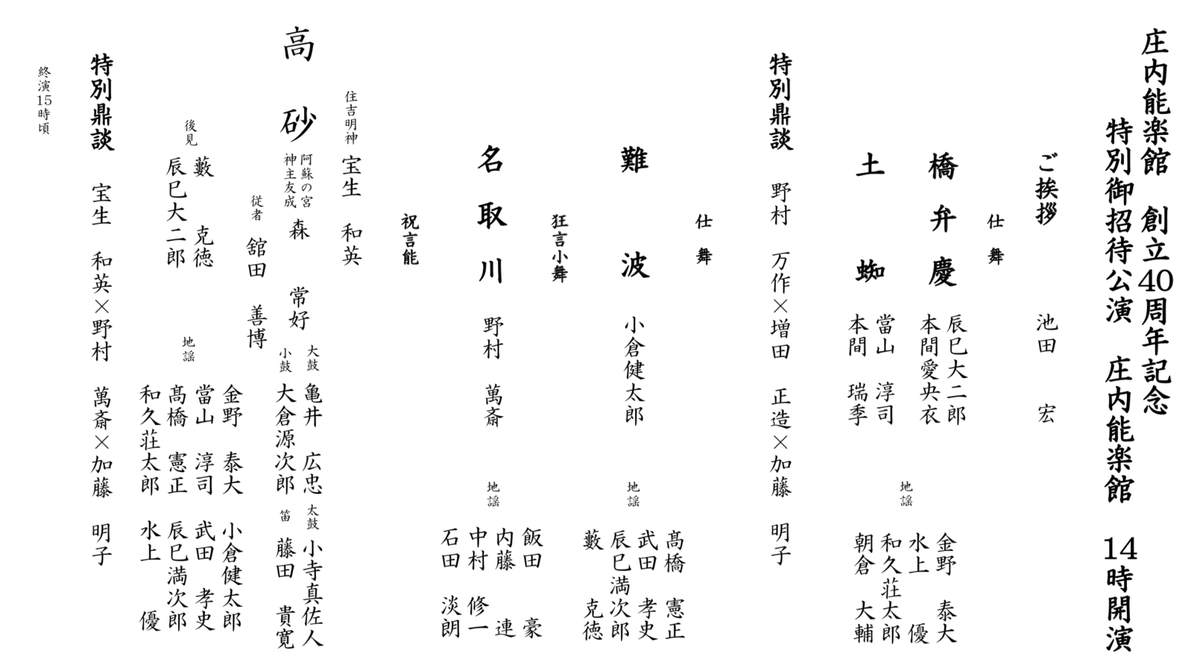 庄内能楽館　創立40周年記念
特別御招待公演　庄内能楽館　14時開演
ご挨拶　池田　宏
仕舞
橋弁慶　辰巳大二郎
本間愛央衣
土蜘　當山　淳司
本間　瑞季
地謡　金野　泰大
水上　優
和久荘太郎
朝倉　大輔
特別鼎談　野村　万作×増田　正造×加藤　明子
仕舞
難波　小倉健太郎
地謡　髙橋　憲正
武田　孝史
辰巳満次郎
藪　克徳
狂言小舞
名取川　野村　萬斎
地謡　飯田　豪
内藤　連
中村　修一
石田　淡朗
祝言能
高砂
住吉明神　宝生　和英
阿蘇の宮
神主友成　森　常好
従者　舘田　善博
大鼓　亀井　広忠
小鼓　大倉源次郎
太鼓　小寺真佐人
笛　藤田　貴寛
後見　藪　克徳
辰巳大二郎
地謡　金野　泰大　小倉健太郎
當山　淳司　武田　孝史
髙橋　憲正　辰巳満次郎
和久荘太郎　水上　優
特別鼎談　宝生　和英×野村　萬斎×加藤　明子
終演15時頃